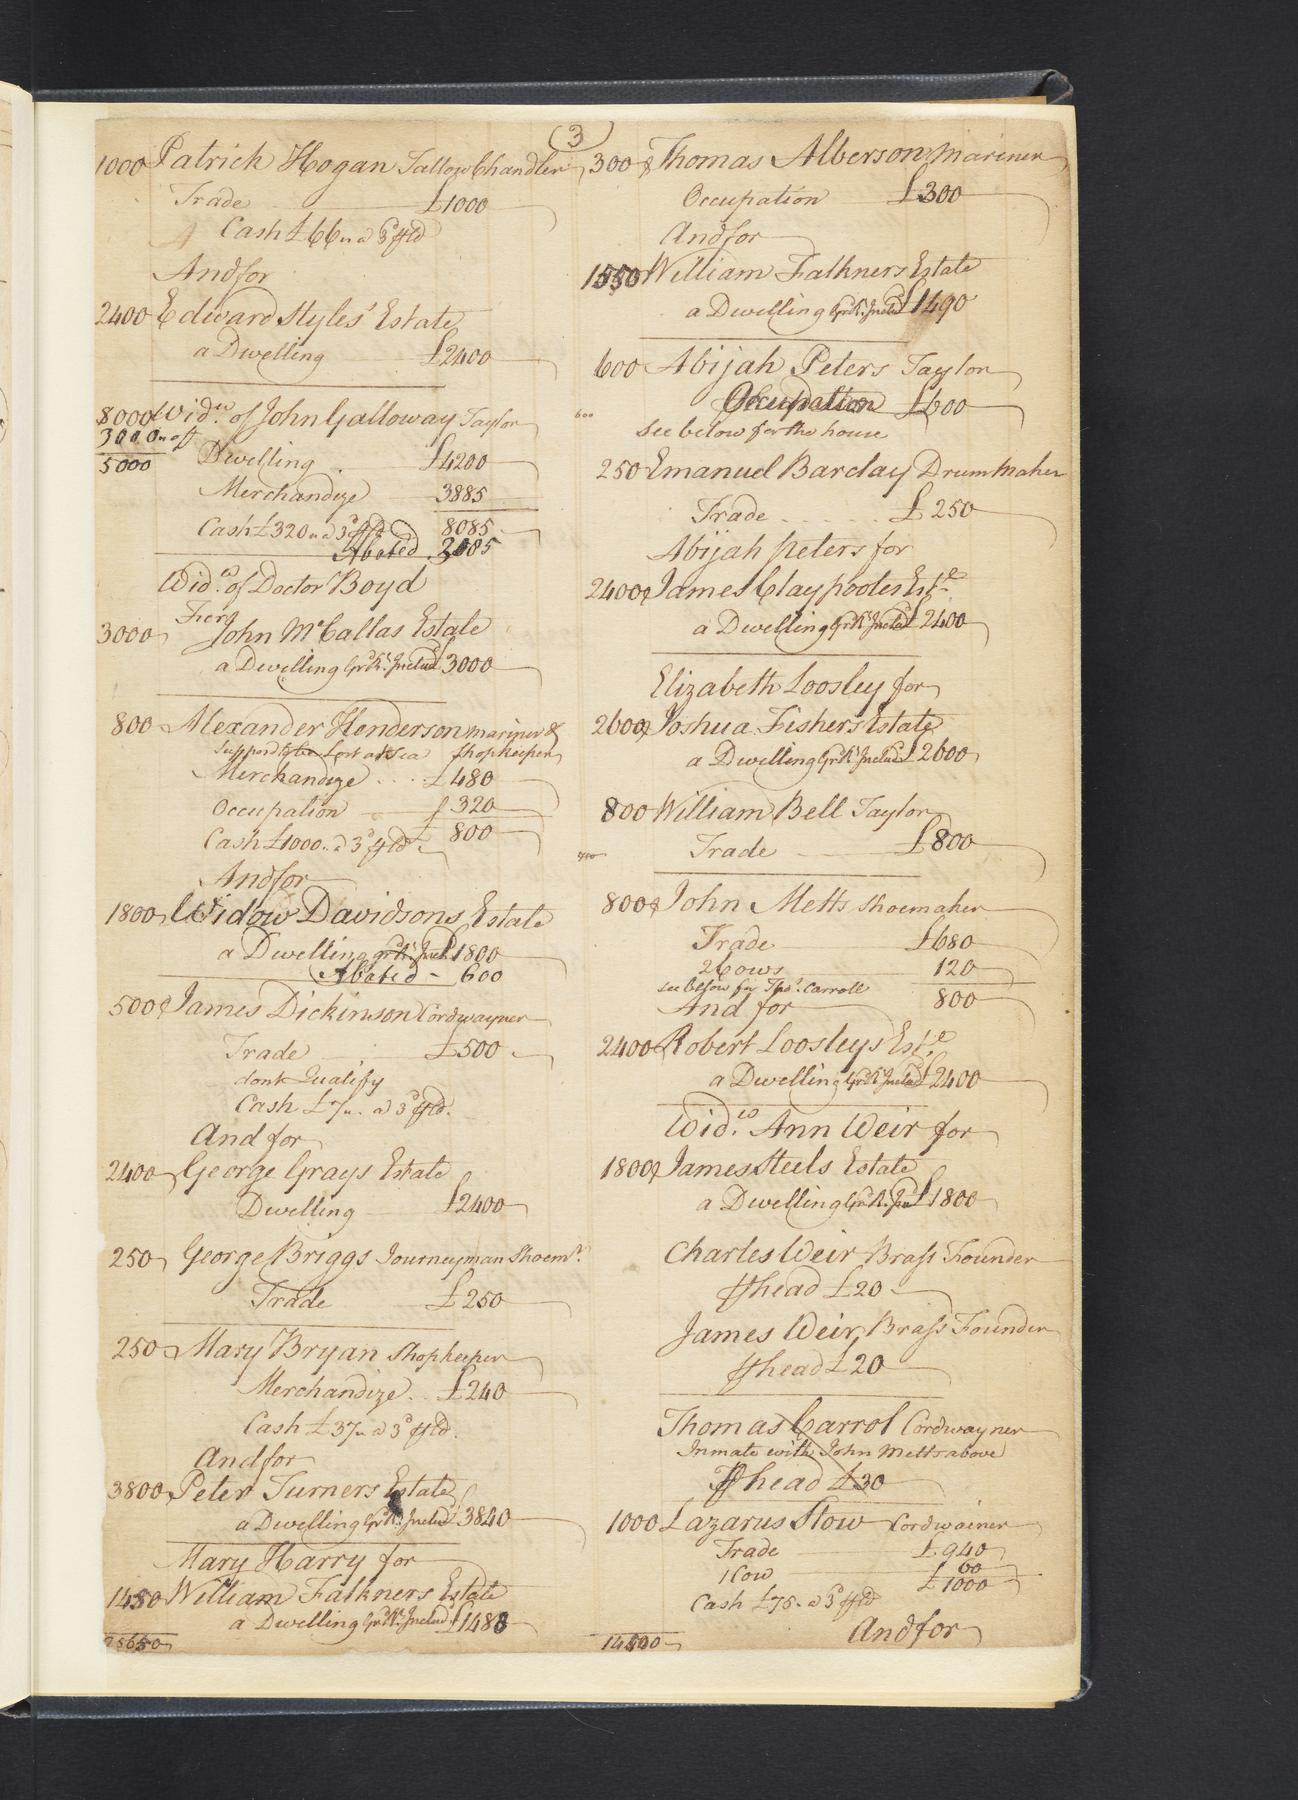 3
1000 Patrick Hogan Tallow Chandler
Trade £1000
Cash £66 a 3d ℔ ld
And for
2400 Edward Styles' Estate
a Dwelling £2400
8000 Widw. of John Galloway Taylor
3000 off
5000 Dwelling £4200
Merchandize 3885
Cash £320 a 3d ℔ ld 8085
Abated 3085
Widw. of Doctor Boyd
For
3000 John McCallas Estate
a Dwelling Grd Rt. Includ £3000
800 Alexander Henderson mariner &
Supposd to be Lost at Sea Shopkeeper
Merchandize £480
Occupation £320
Cash £1000 a 3d ℔ ld £800
And for
1800 Widow Davidsons Estate
a Dwelling Grd Rt. Incld £1800
Abated - 600
500 James Dickinson Cordwayner
Trade £500
dont Qualify
Cash £7 a 3d ℔ ld.
And for
2400 George Grays Estate
Dwelling £2400
250 George Briggs Journeyman Shoemr.
Trade £250
250 Mary Bryan Shopkeeper
Merchandize £240
Cash £37 a 3d ℔ ld.
And for
3800 Peter Turners Estate
a Dwelling Grd Rt. Includ £3840
Mary Harry for
1450 William Falkners Estate
a Dwelling Grd Rt. Includ. £1488
25650
300 Thomas Alberson Mariner
Occupation £300
And for
1550 William Falkners Estate
a Dwelling Grd Rt. Includ £1490
600 Abijah Peters Taylor
600 Occupation £600
see below for the house
250 Emanuel Barclay Drum Maker
Trade £250
Abijah Peters for
2400 James Claypooles Este.
a Dwelling Grd Rt Includ £2400
Elizabeth Loosley for
2600 Joshua Fishers Estate
a Dwelling Grd Rt Includ £2600
800 William Bell Taylor
Trade £800
800 John Metts Shoemaker
Trade £680
2 Cows 120
see below for Thos. Carroll 800
And for
2400 Robert Loosleys Este.
a Dwelling Grd Rt Includ £2400
Widw. Ann Weir for
1800 James Steels Estate
a Dwelling Grd Rt. Incl £1800
Charles Weir Brass Founder
℔ head £20
James Weir Brass Founder
℔ head £20
Thomas Carrol Cordwayner
Inmate with John Metts above
℔ head £30
1000 Lazarus Stow Cordwainer
Trade £940
1 Cow £60
£1000
Cash £75 a 3d ℔ ld
14500 And for